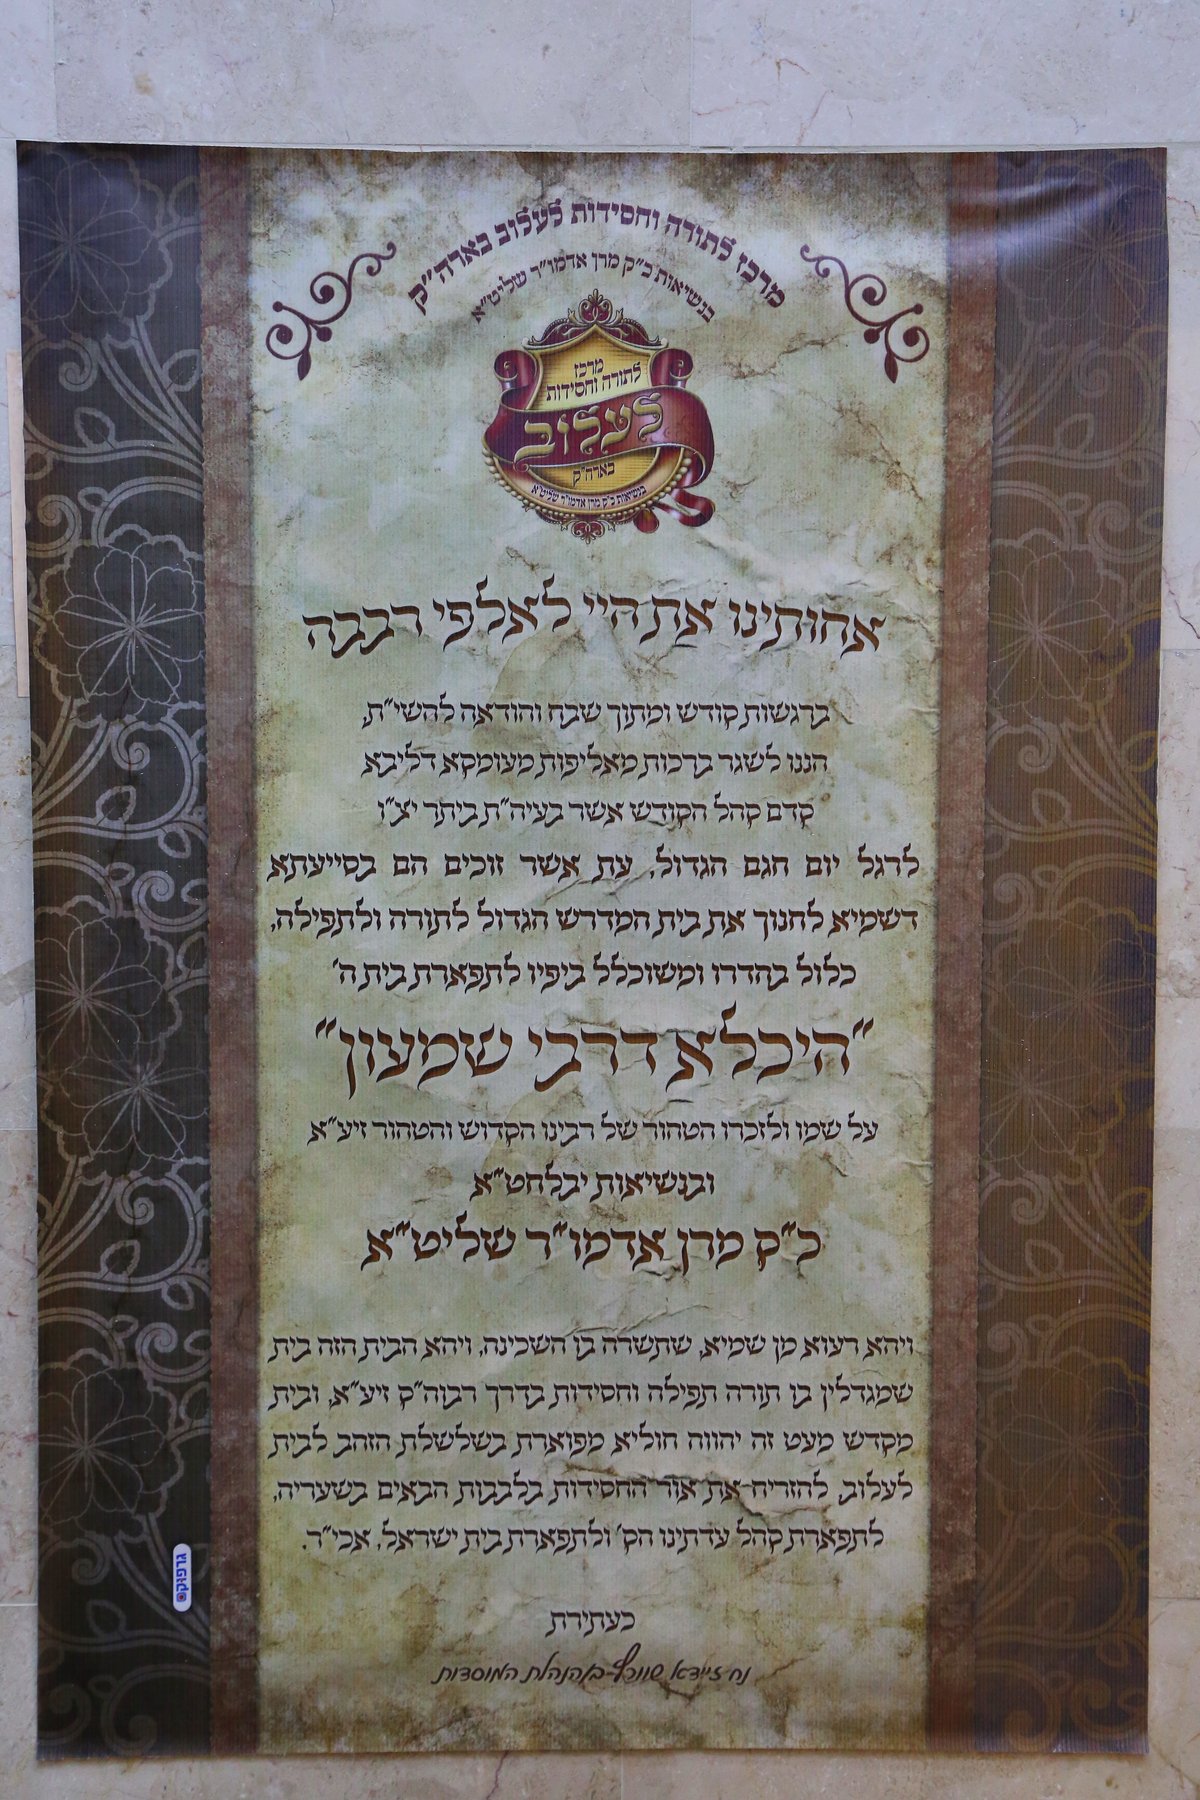 מרכז לתורה וחסידות לעלוב בארה"ק
בנשיאות כ"ק מרן אדמו"ר שליט"א
מרכז
לתורה וחסידות
לעלוב
בארה"ק
בנשיאות כ"ק מרן אדמו"ר שליט"א
אחותינו את היי לאלפי רבבה
ברגשות קודש ומתוך שבח והודאה להשי"ת,
הננו לשגר ברכות מאליפות מעומקא דליבא
קדם קהל הקודש אשר בעיה"ת ביתר יצ"ו
לרגל יום חגם הגדול, עת אשר זוכים הם בסייעתא
דשמיא לחנוך את בית המדרש הגדול לתורה ולתפילה,
כלול בהדרו ומשוכלל ביפיו לתפארת בית ה'
"היכלא דרבי שמעון"
על שמו ולזכרו הטהור של רבינו הקדוש והטהור זיע"א
ובנשיאות יבלחט"א
כ"ק מרן אדמו"ר שליט"א
ויהא רעוא מן שמיא, שתשרה בו השכינה, ויהא הבית הזה בית
שמגדלין בו תורה תפילה וחסידות בדרך רבוה"ק זיע"א, ובית
מקדש מעט זה יהווה חוליא מפוארת בשלשלת הזהב לבית
לעלוב, להזריח את אור החסידות בלבבות הבאים בשעריה,
לתפארת קהל עדתינו הק' ולתפארת בית ישראל, אכי"ר.
כעתירת
נח זיידא שוורץ-בהנהלת המוסדות
גרפוס